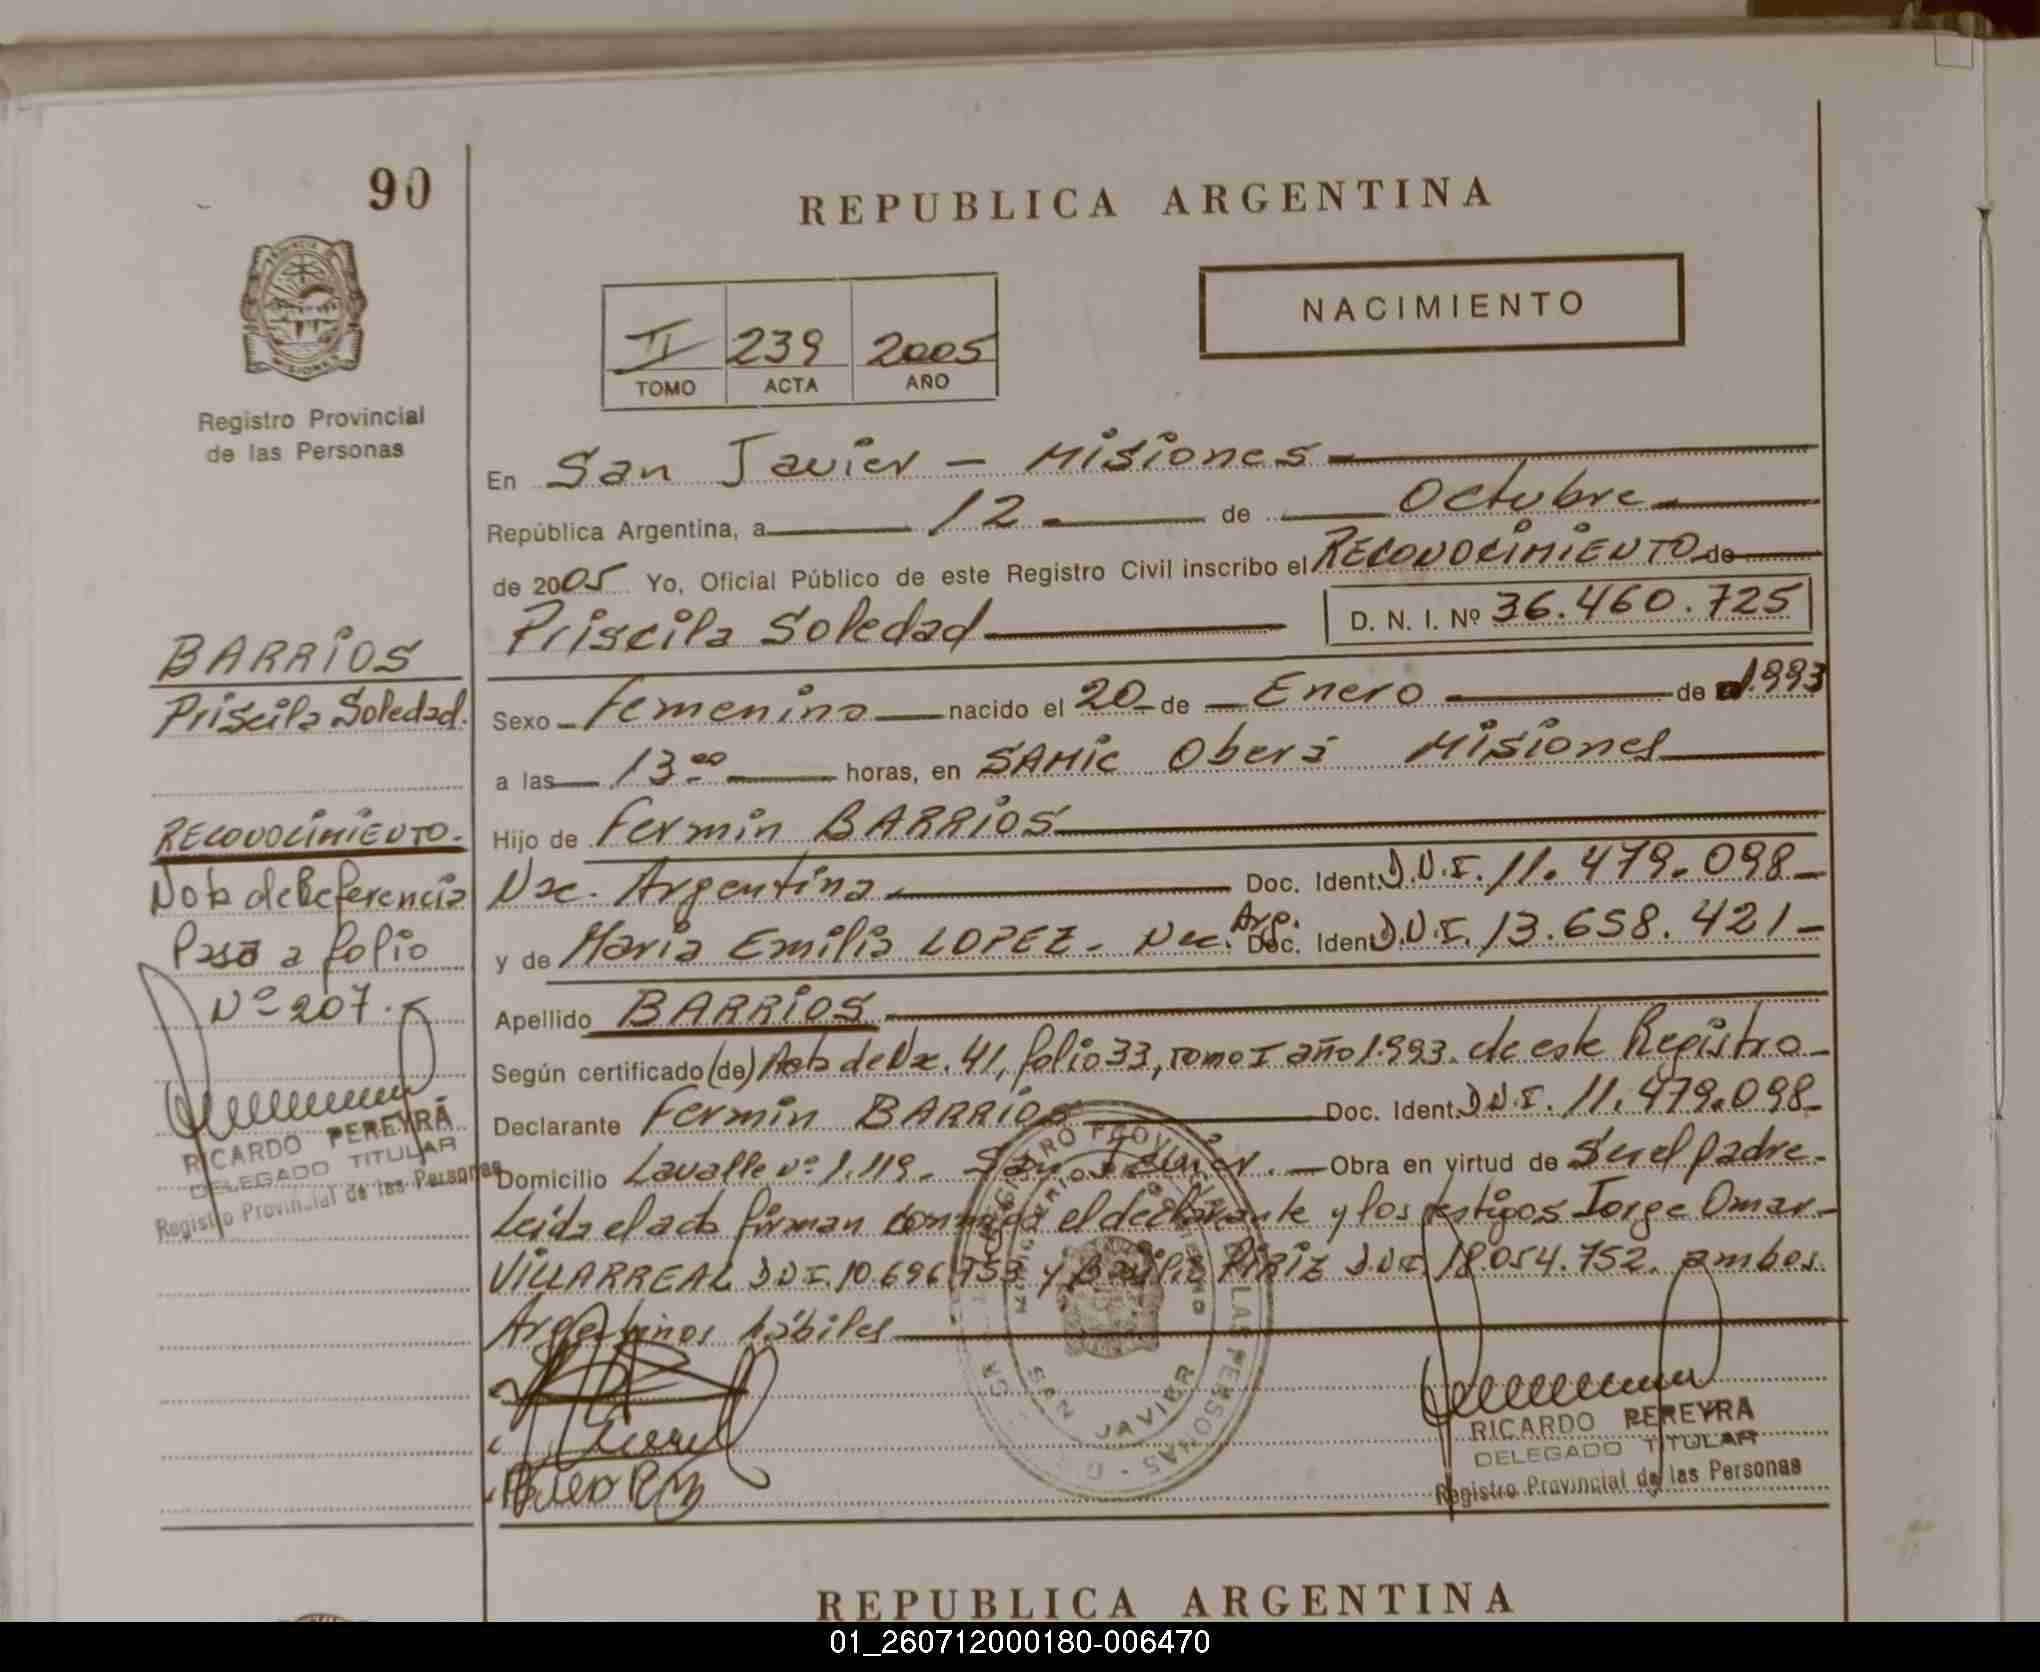 90
REPUBLICA ARGENTINA
NACIMIENTO
II 239 2005
TOMO ACTA AÑO
Registro Provincial
de las Personas
En San Javier - Misiones
República Argentina, a 12 de Octubre
de 2005 Yo, Oficial Público de este Registro Civil inscribo el RECONOCIMIENTO de
Priscila Soledad D. N. I. Nº 36.460.725
Sexo Femenino nacido el 20 de Enero de 1.993
a las 13 00 horas, en SAMIC Oberá Misiones
Hijo de Fermin BARRIOS
Nac. Argentina Doc. Ident. D.N.I. 11.479.098
y de Maria Emilia LOPEZ - Nac. Arg. Doc. Ident. D.N.I. 13.658.421
Apellido BARRIOS
Según certificado (de) Acta de Nac. 41, folio 33, Tomo I año 1.993. de este Registro
Declarante Fermin BARRIOS Doc. Ident. D.N.I. 11.479.098
Domicilio Lavalle nº 1.119 - San Javier. Obra en virtud de Ser el padre
Leída el acta firman conmigo el declarante y los testigos Jorge Omar
VILLARREAL D.N.I. 10.696.753 y PIRIZ D.N.I. 18.054.752. ambos
Argentinos hábiles
BARRIOS
Priscila Soledad.
RECONOCIMIENTO.
Nota de Referencia
Pasó a folio
Nº 207.
RICARDO PEREYRA
DELEGADO TITULAR
Registro Provincial de las Personas
SAN JAVIER
RICARDO PEREYRA
DELEGADO TITULAR
Registro Provincial de las Personas
REPUBLICA ARGENTINA
01_260712000180-006470